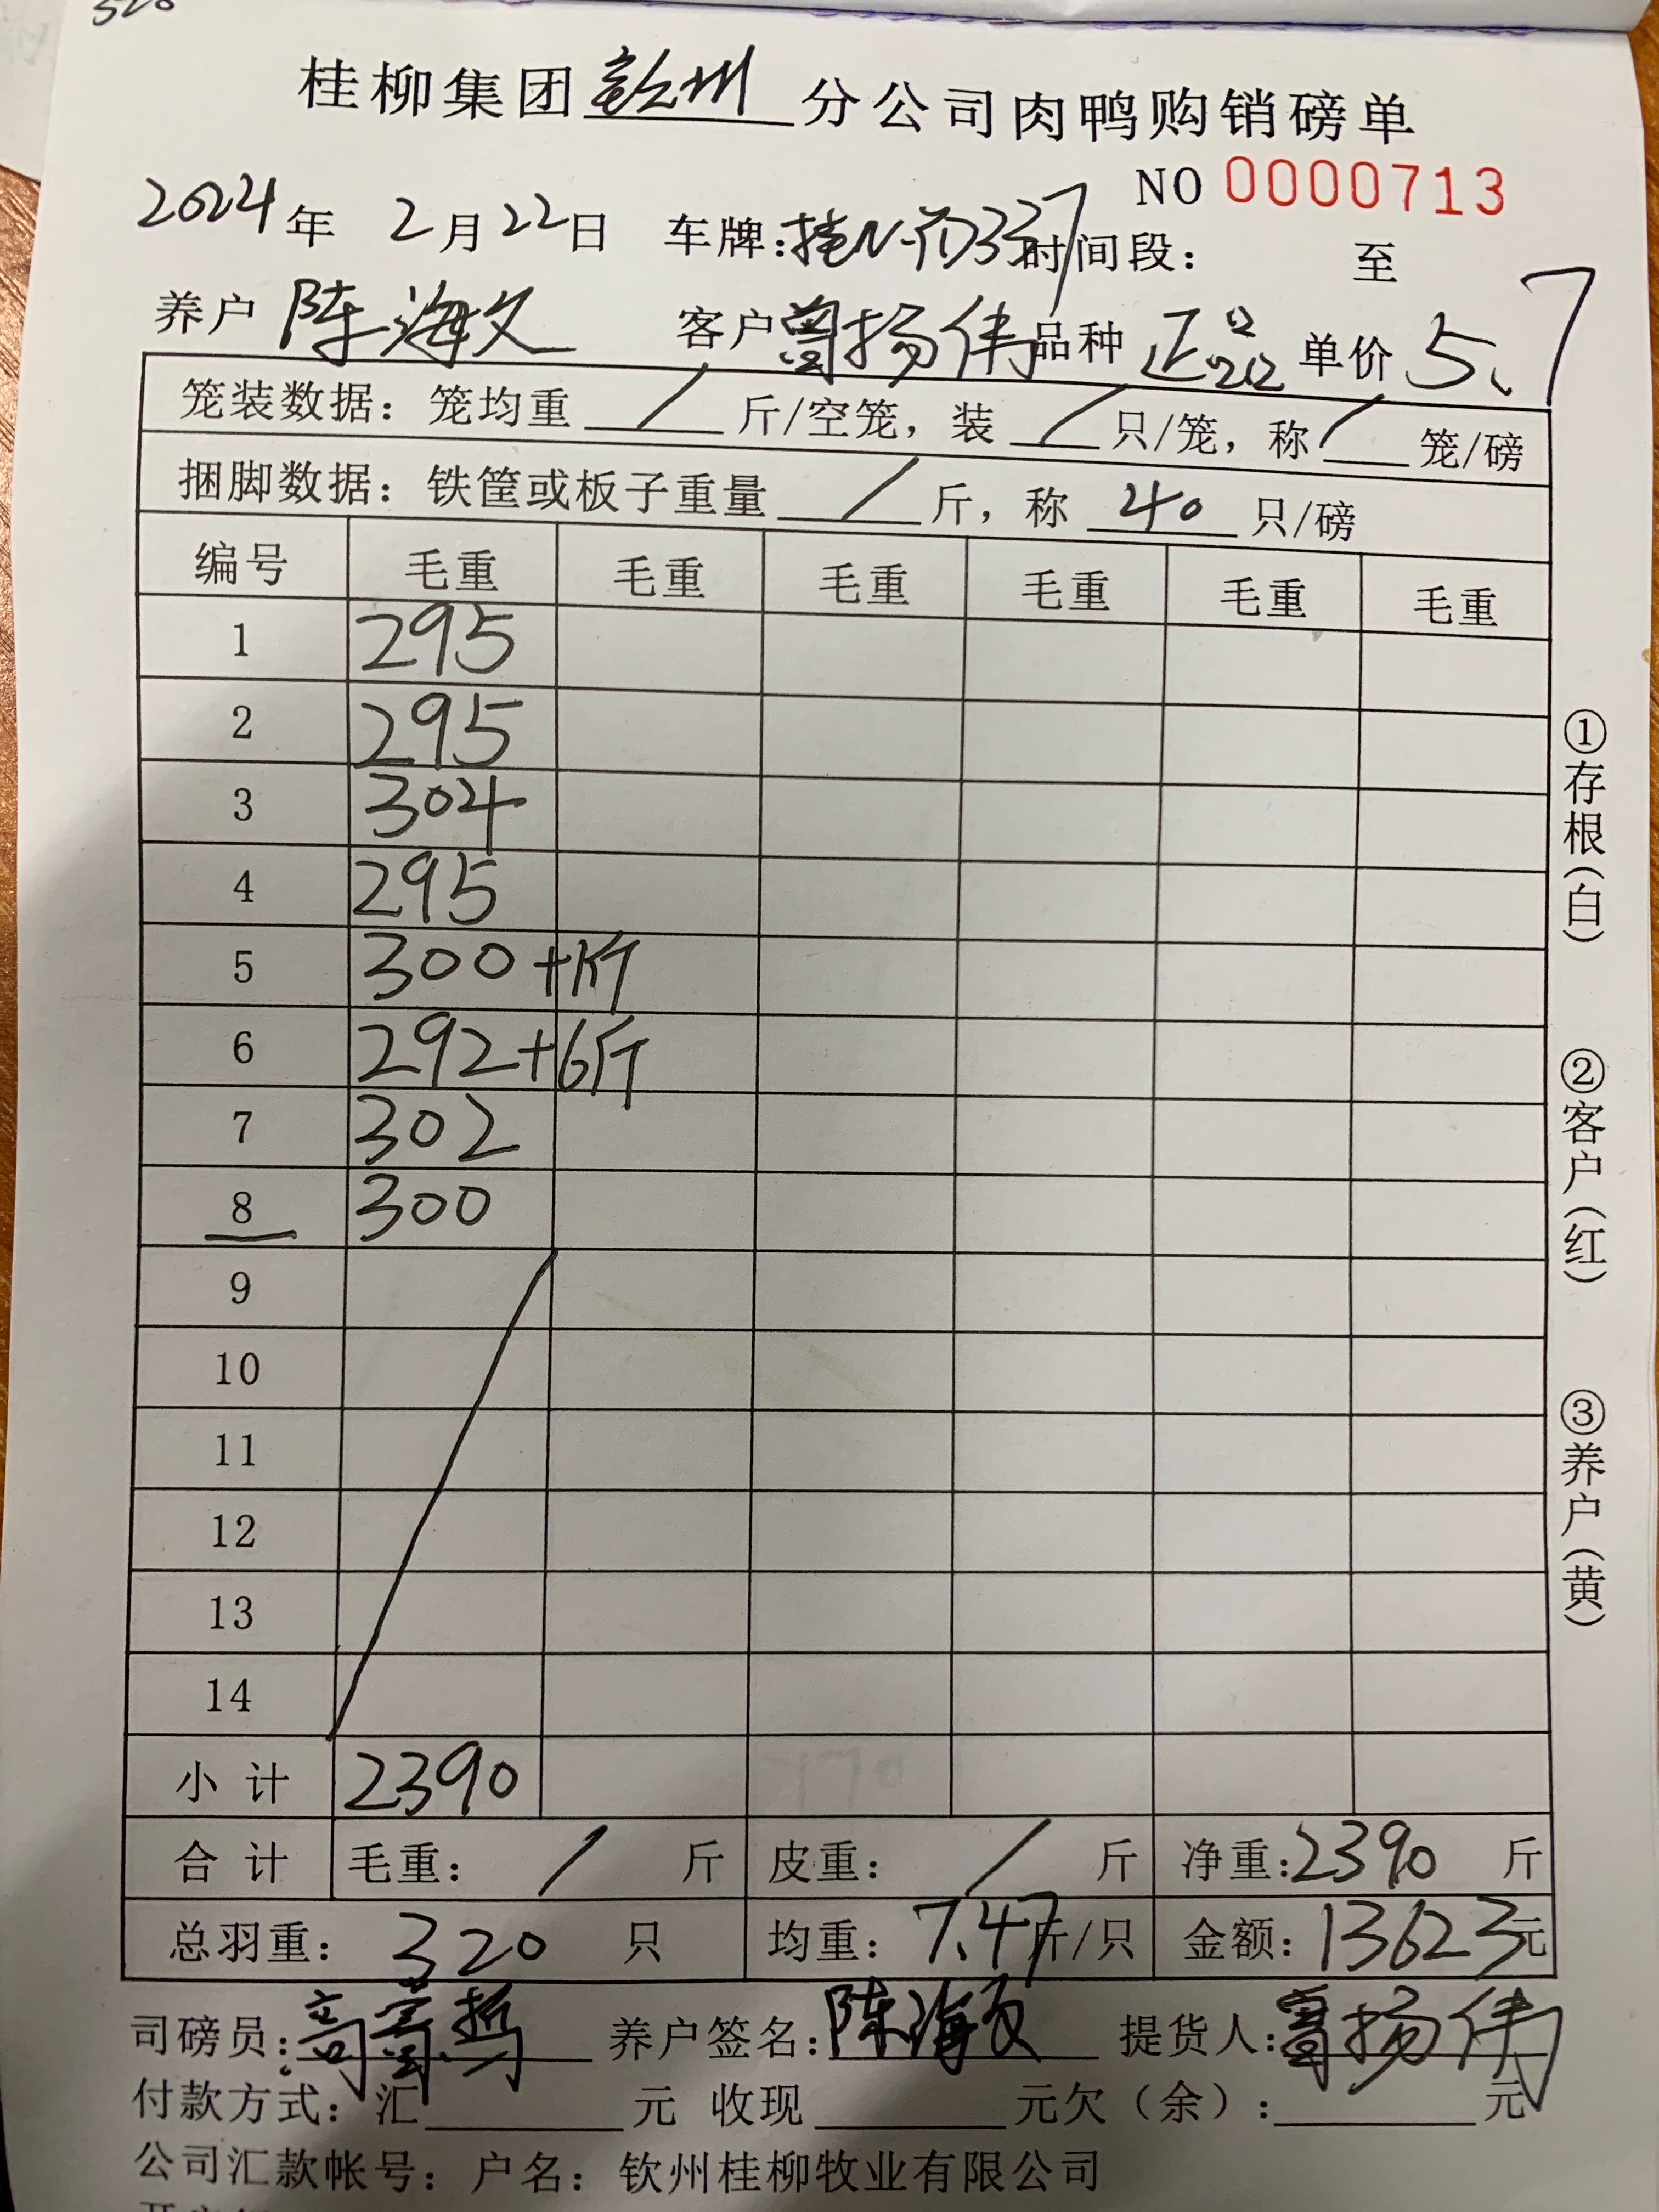 桂柳集团 钦州 分公司肉鸭购销磅单
NO 0000713
2024年 2月22日 车牌: 337 时间段: 至
养户 陈海文 客户 曾扬伟 品种 正品 单价 5.7
笼装数据: 笼均重 / 斤/空笼, 装 / 只/笼, 称 / 笼/磅
捆脚数据: 铁筐或板子重量 / 斤, 称 40 只/磅
编号 毛重 毛重 毛重 毛重 毛重 毛重
1 295
2 295
3 304
4 295
5 300+1斤
6 292+6斤
7 302
8 300
9
10
11
12
13
14
小计 2390
合计 毛重: / 斤 皮重: / 斤 净重: 2390 斤
总羽重: 320 只 均重: 7.47斤/只 金额: 13623元
司磅员: 养户签名: 陈海文 提货人: 曾扬伟
付款方式: 汇 元 收现 元欠(余): 元
公司汇款帐号: 户名: 钦州桂柳牧业有限公司
①存根(白)
②客户(红)
③养户(黄)